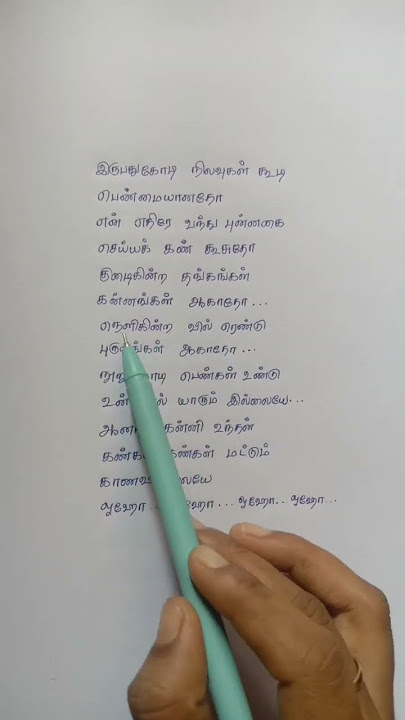 இருபதுகோடி நிலவுகள் கூடி
பெண்மையானதோ
என் எதிரே வந்து புன்னகை
செய்யக் கண் கூசுதோ
குடைகின்ற தங்கங்கள்
கன்னங்கள் ஆகாதோ...
நெளிகின்ற வில் ரெண்டு
ஆகாதோ...
பெண்கள் உண்டு
யாரும் இல்லையே...
கன்னி உந்தன்
கண்கள் மட்டும்
ஓஹோ.. ஓஹோ.. ஓஹோ..